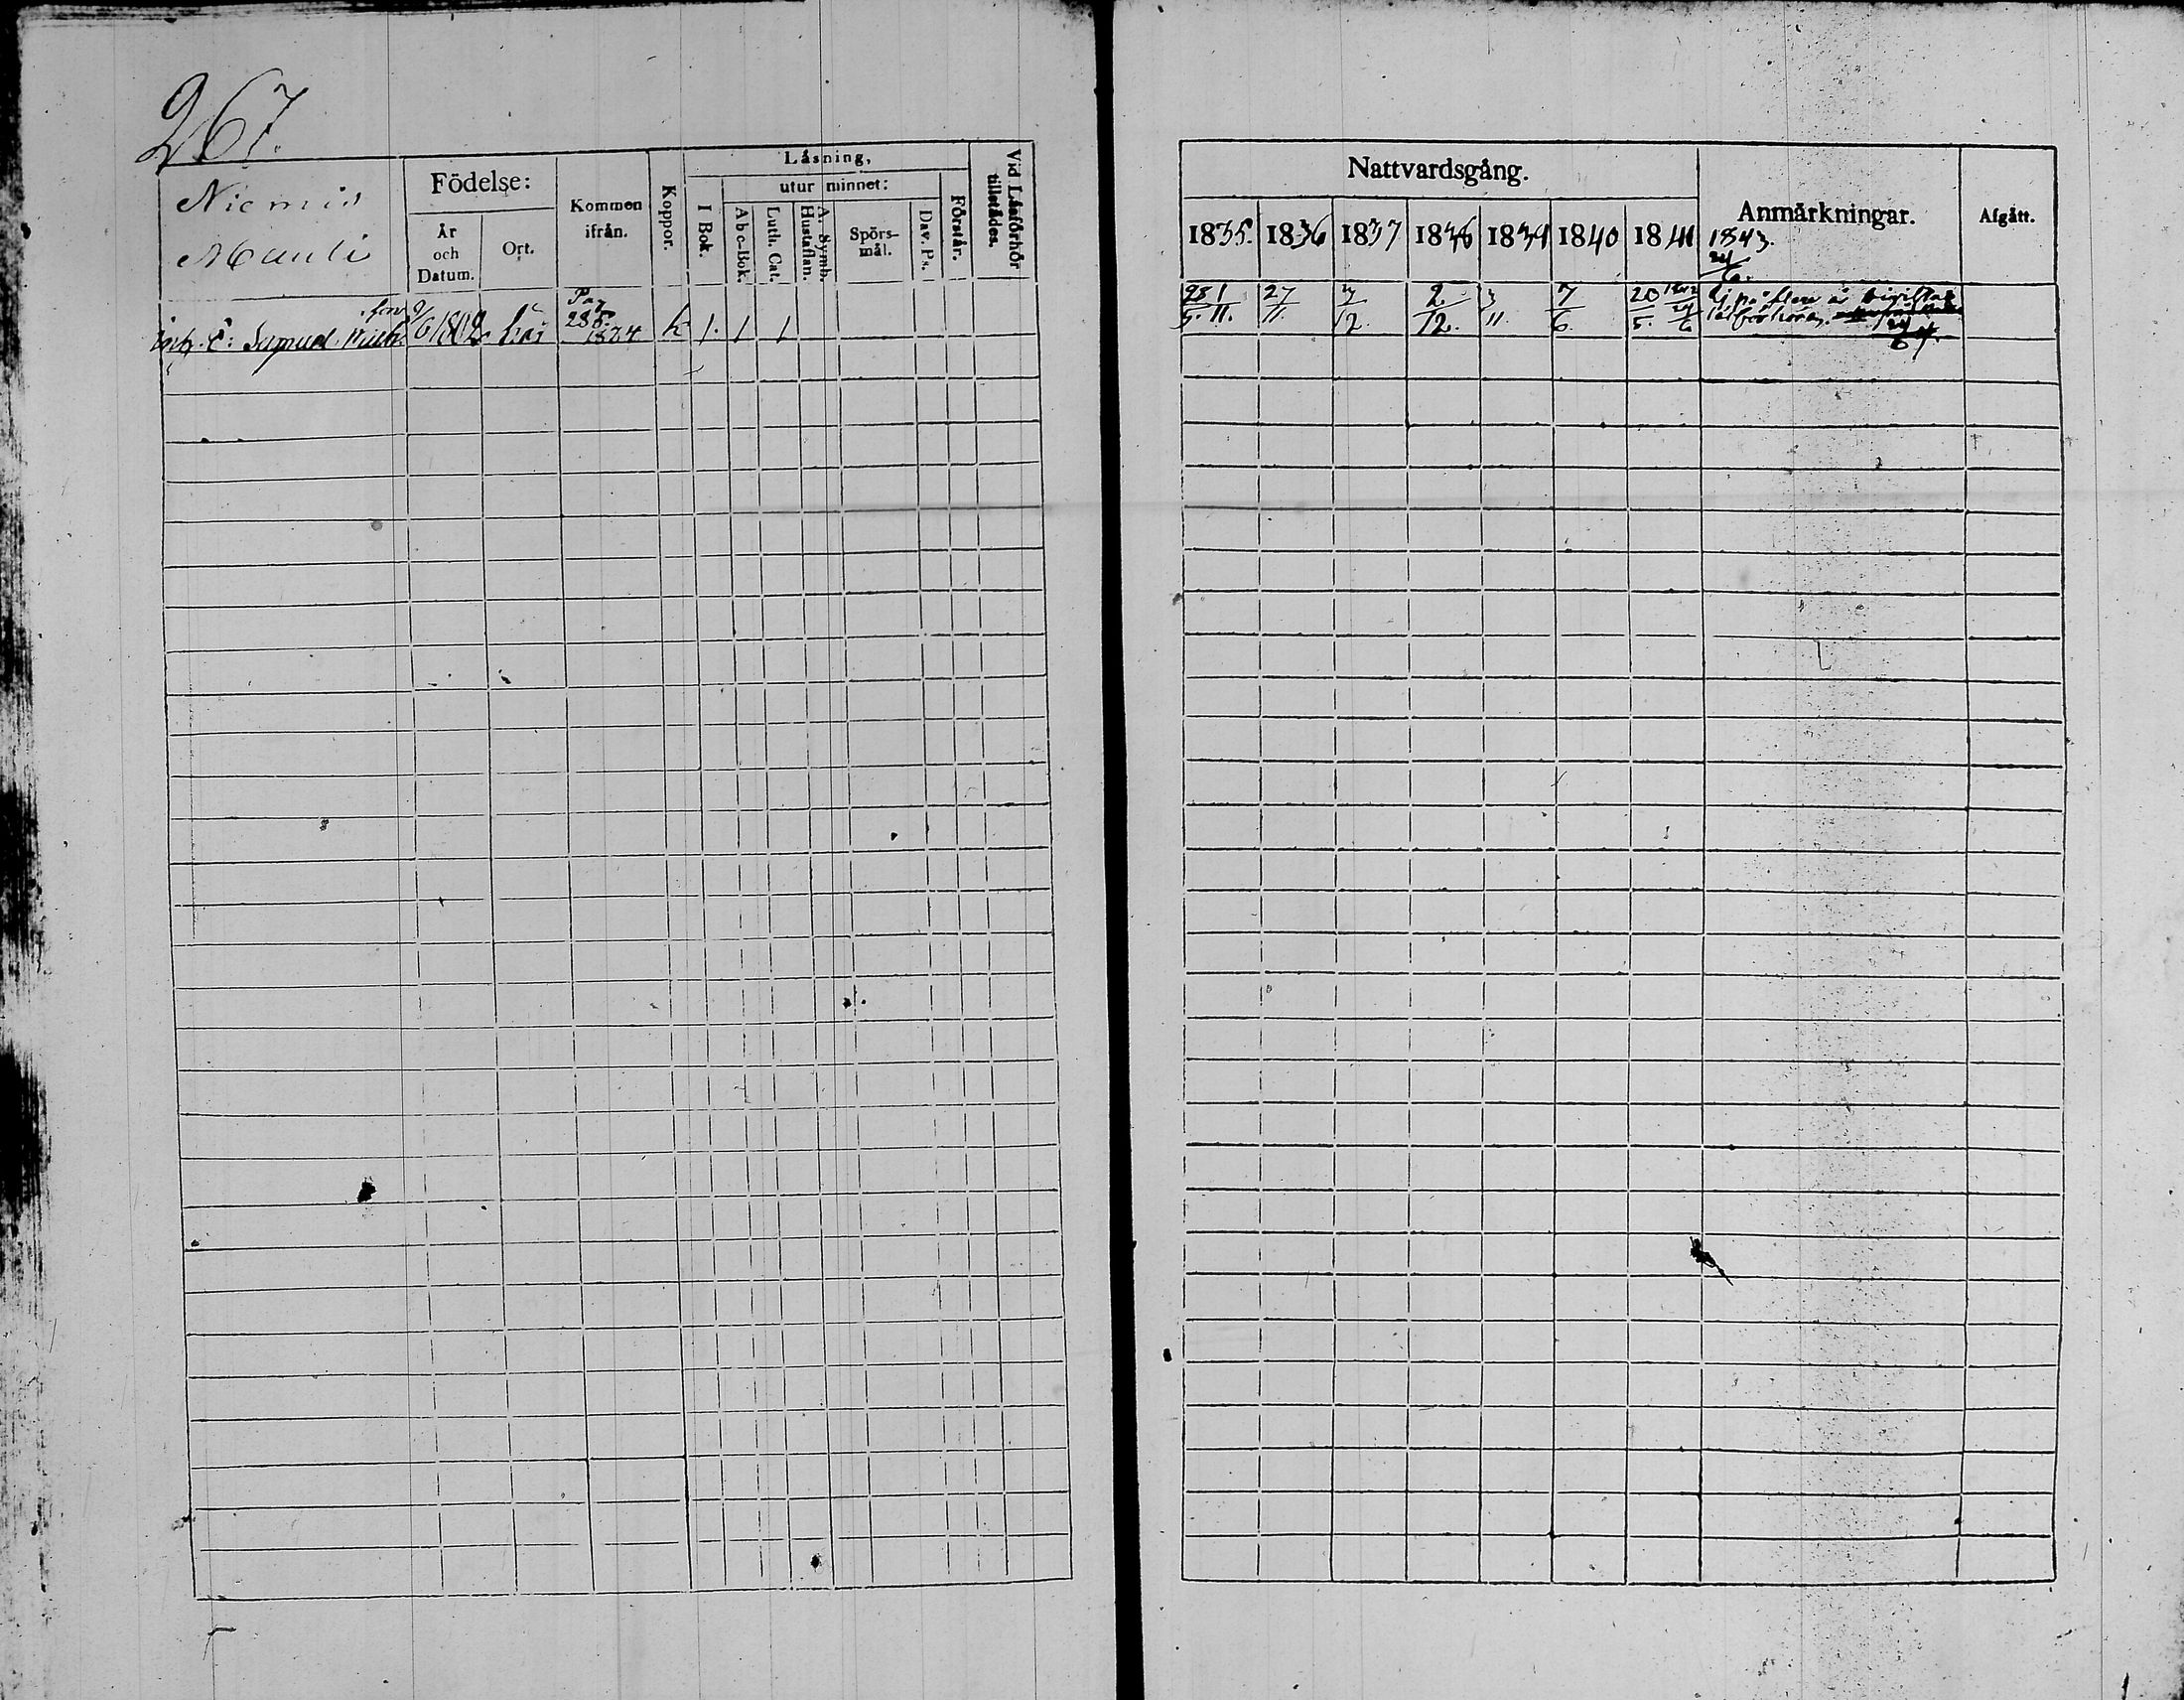 267.
Niemis
Mauli
Födelse:
År
och
Datum.
Ort.
Kommen
ifrån.
Koppor.
Läsning,
I Bok.
utur minnet:
Abc-Bok.
Luth. Cat.
A. Symb.
Hustaflan.
Spörs-
mål.
Dav. Ps.
Förstår.
Vid Läsförhör
tillstädes.
Samuel 6/1802. här 1834 k 1. 1 1
Nattvardsgång.
1835. 1836 1837 1838 1839 1840 1841
Anmärkningar.
1843.
24/6.
Afgått.
27/11. 3/12. 2./12. 3/11. 7/6. 20/5. 1842 24/6 Ej på flere år